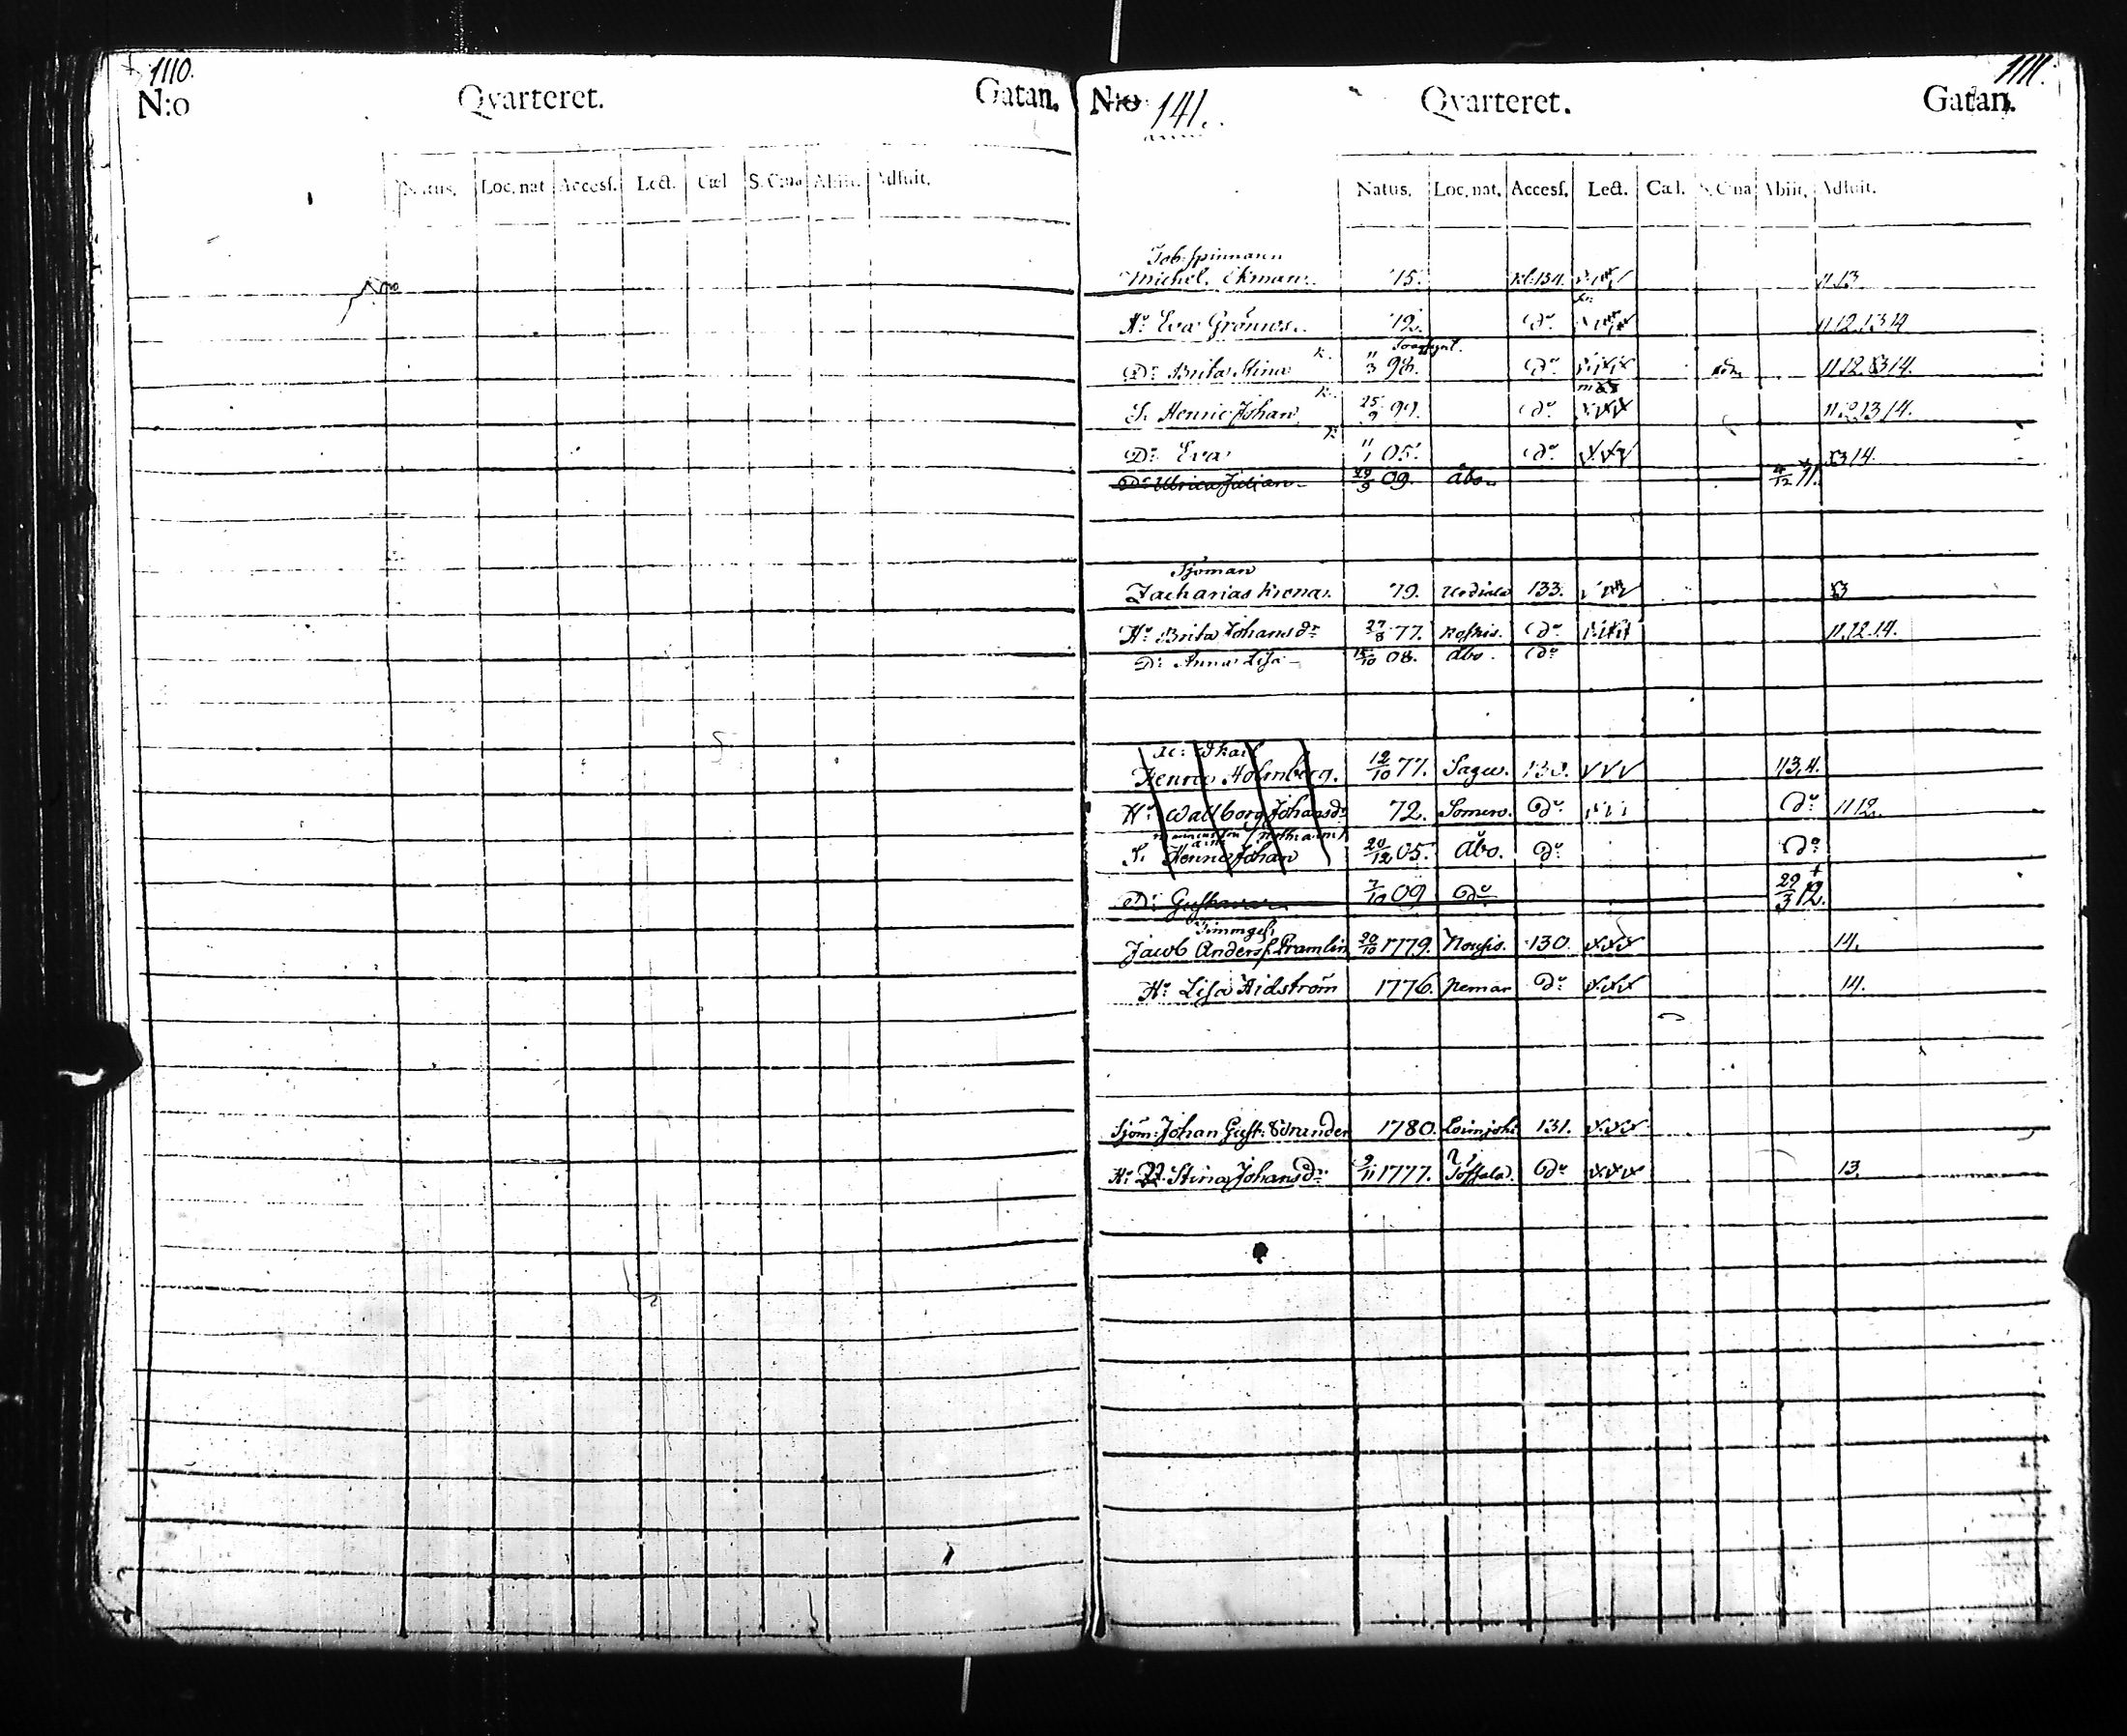 1110.
N:o Qvarteret. Gatan.
Natus. Loc. nat Accesf. Lect. Cæl S. Cœna Abiit. Adfuit.
1111.
N:o 141. Qvarteret. Gatan.
Natus. Loc. nat. Accesf. Lect. Cæl. S. Cœna Abiit. Adfuit.
Tob. spinnaren
Michel Ekman. 75. kl. 134. 11.13
Hu Eva Grönroos. 72. Do 11.12.13.14
Dr Brita Stina 11/3 98. Do 11.12.13.14.
S. Henric Johan 25/9 99. Do 11.12.13.14.
Dr Eva 11/1 05. Do 13.14.
Dr Ulrica Julian 29/9 09. Åbo 4/12 11.
Sjöman
Zacharias 79. 133. 13
Hu Brita Johansdr 27/8 77. Koskis. Do 11.12.14.
Dr Anna Lisa 15/10 08. Åbo. Do
Henric Holmberg. 12/10 77. Sagu. 130. 113.4.
Hu Wallborg Johansdr 72. Somero. Do Do 11.12.
S. Henric Johan 20/12 05. Åbo. Do Do
Dr Gustava 7/10 09 Do 29/3 12.
Timmges.
Jacob Anderss. Framlin 20/10 1779. Nousis. 130. xxx 14.
Hu Lisa Hidström 1776. Nemar Do xxx 14.
Sjöm: Johan Gust: Strander 1780. Loimjoki 131. xxx
Hu Stina Johansdr 9/11 1777. Do xxx 13.